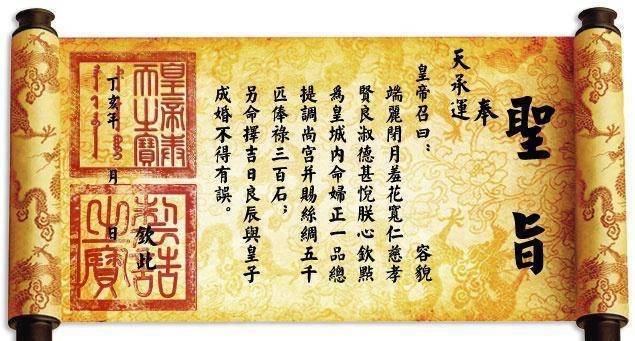 聖旨
奉
天承運
皇帝召曰： 容貌
端麗閉月羞花寬仁慈孝
賢良淑德甚悅朕心欽點
爲皇城内命婦正一品總
提調尚宮并賜絲綢五千
匹俸祿三百石；
另命擇吉日良辰與皇子
成婚不得有誤。
欽此
丁亥年 月 日
皇帝奉
天之寶
制誥
之寶